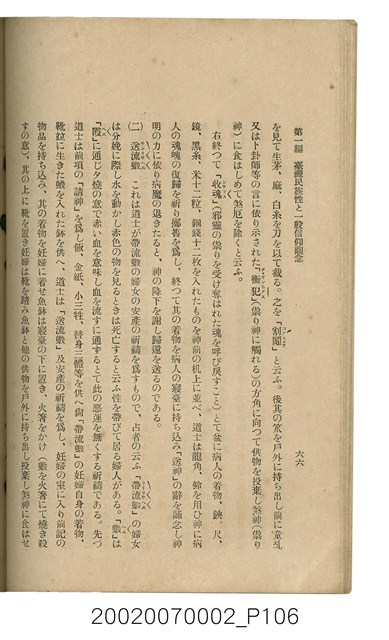 第一編　臺灣民族性と一般信仰觀念
六六
を見て生茅、麻、白糸を刀を以て裁る。之を「割鬮」と云ふ。後其の笊を戶外に持ち出し前に童乩
又は卜卦師等の言に依り示された「衝犯」(祟り神に觸れる)の方角に向つて供物を投棄し煞神(祟り
神)に食はしめて煞厄を除くと云ふ。
右終つて「收魂」(邪靈の祟りを受け奪はれた魂を呼び戾すこと)とて盆に病人の着物、鋏、尺、
鏡、黑糸、米十二粒、銅錢十二枚を入れたものを神前の机上に並べ、道士は龍角、鈴を用ひ神に病
人の魂魄の復歸を祈り擲筶を爲し、終つて其の着物を病人の寢臺に持ち込み「送神」の辭を誦念し神
明の力に依り病魔の退きたると、神の降下を謝し歸還を送るのである。
(二) 送流蝦　これは道士が帶流蝦の婦女の安產の祈禱を爲すもので、占者の云ふ「帶流蝦」の婦女
は分娩に際し水を動かし赤色の物を見るときは死亡すると云ふ性を帶びて居る婦人がある。「蝦」は
「霞」に通じ夕燒の意で赤い血を意味し血を流すに通ずるとて此の惡運を無くする祈禱である。先づ
道士は前項の「請神」を爲し飯、金紙、小三牲、替身三體等を供へ尙「帶流蝦」の妊婦自身の着物、
靴竝に生きた蝦を入れた鉢を供へ、道士は「送流蝦」及安產の祈禱を爲し、妊婦の室に入り前記の
物品を持ち込み、其の着物を妊婦に着せ魚鉢は寢臺の下に置き、火箸をかけ(蝦を火箸にて燒き殺
すの意)、其の上に靴を置き妊婦は靴を踏み魚鉢と他の供物を戶外に持ち出し投棄し煞神に食はせ
20020070002_P106